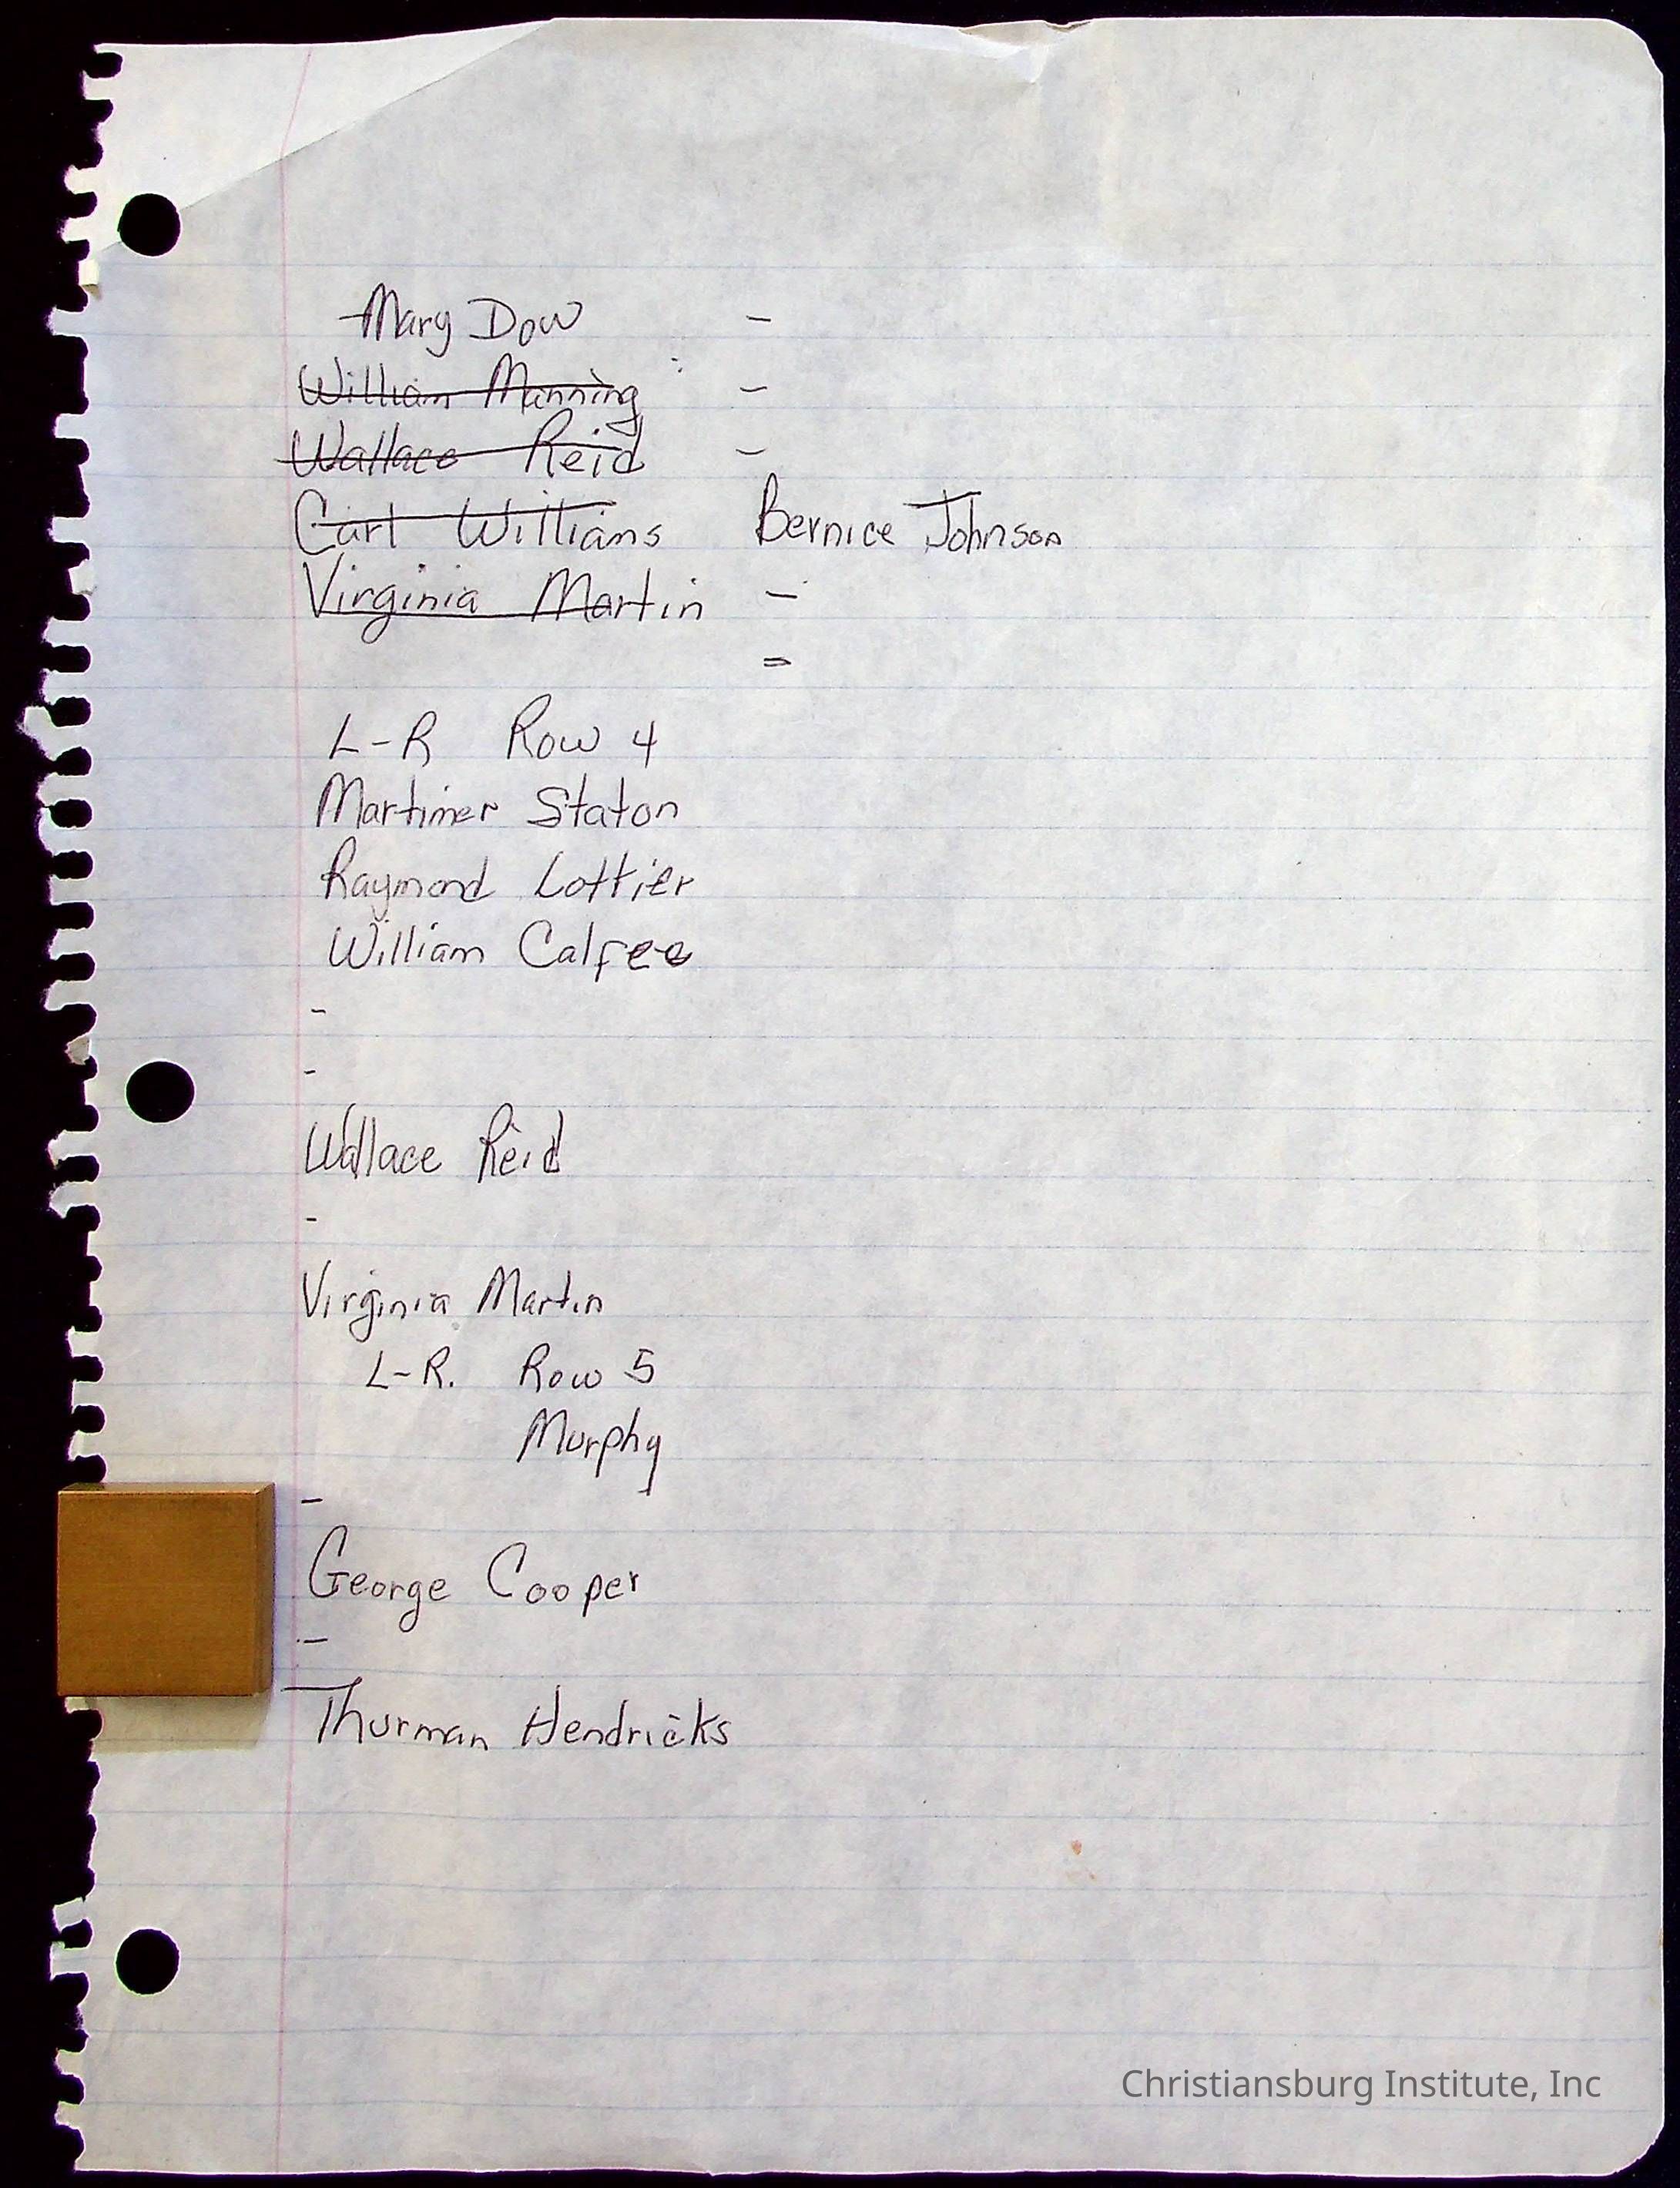 Mary Dow -
William Manning -
Wallace Reid -
Carl Willians Bernice Johnson
Virginia Martin -
=
L-R Row 4
Martimer Staton
Raymond Lottier
William Calfee
-
-
Wallace Reid
-
Virginia Martin
L-R. Row 5
Murphy
-
George Cooper
-
Thurman Hendricks
Christiansburg Institute, Inc